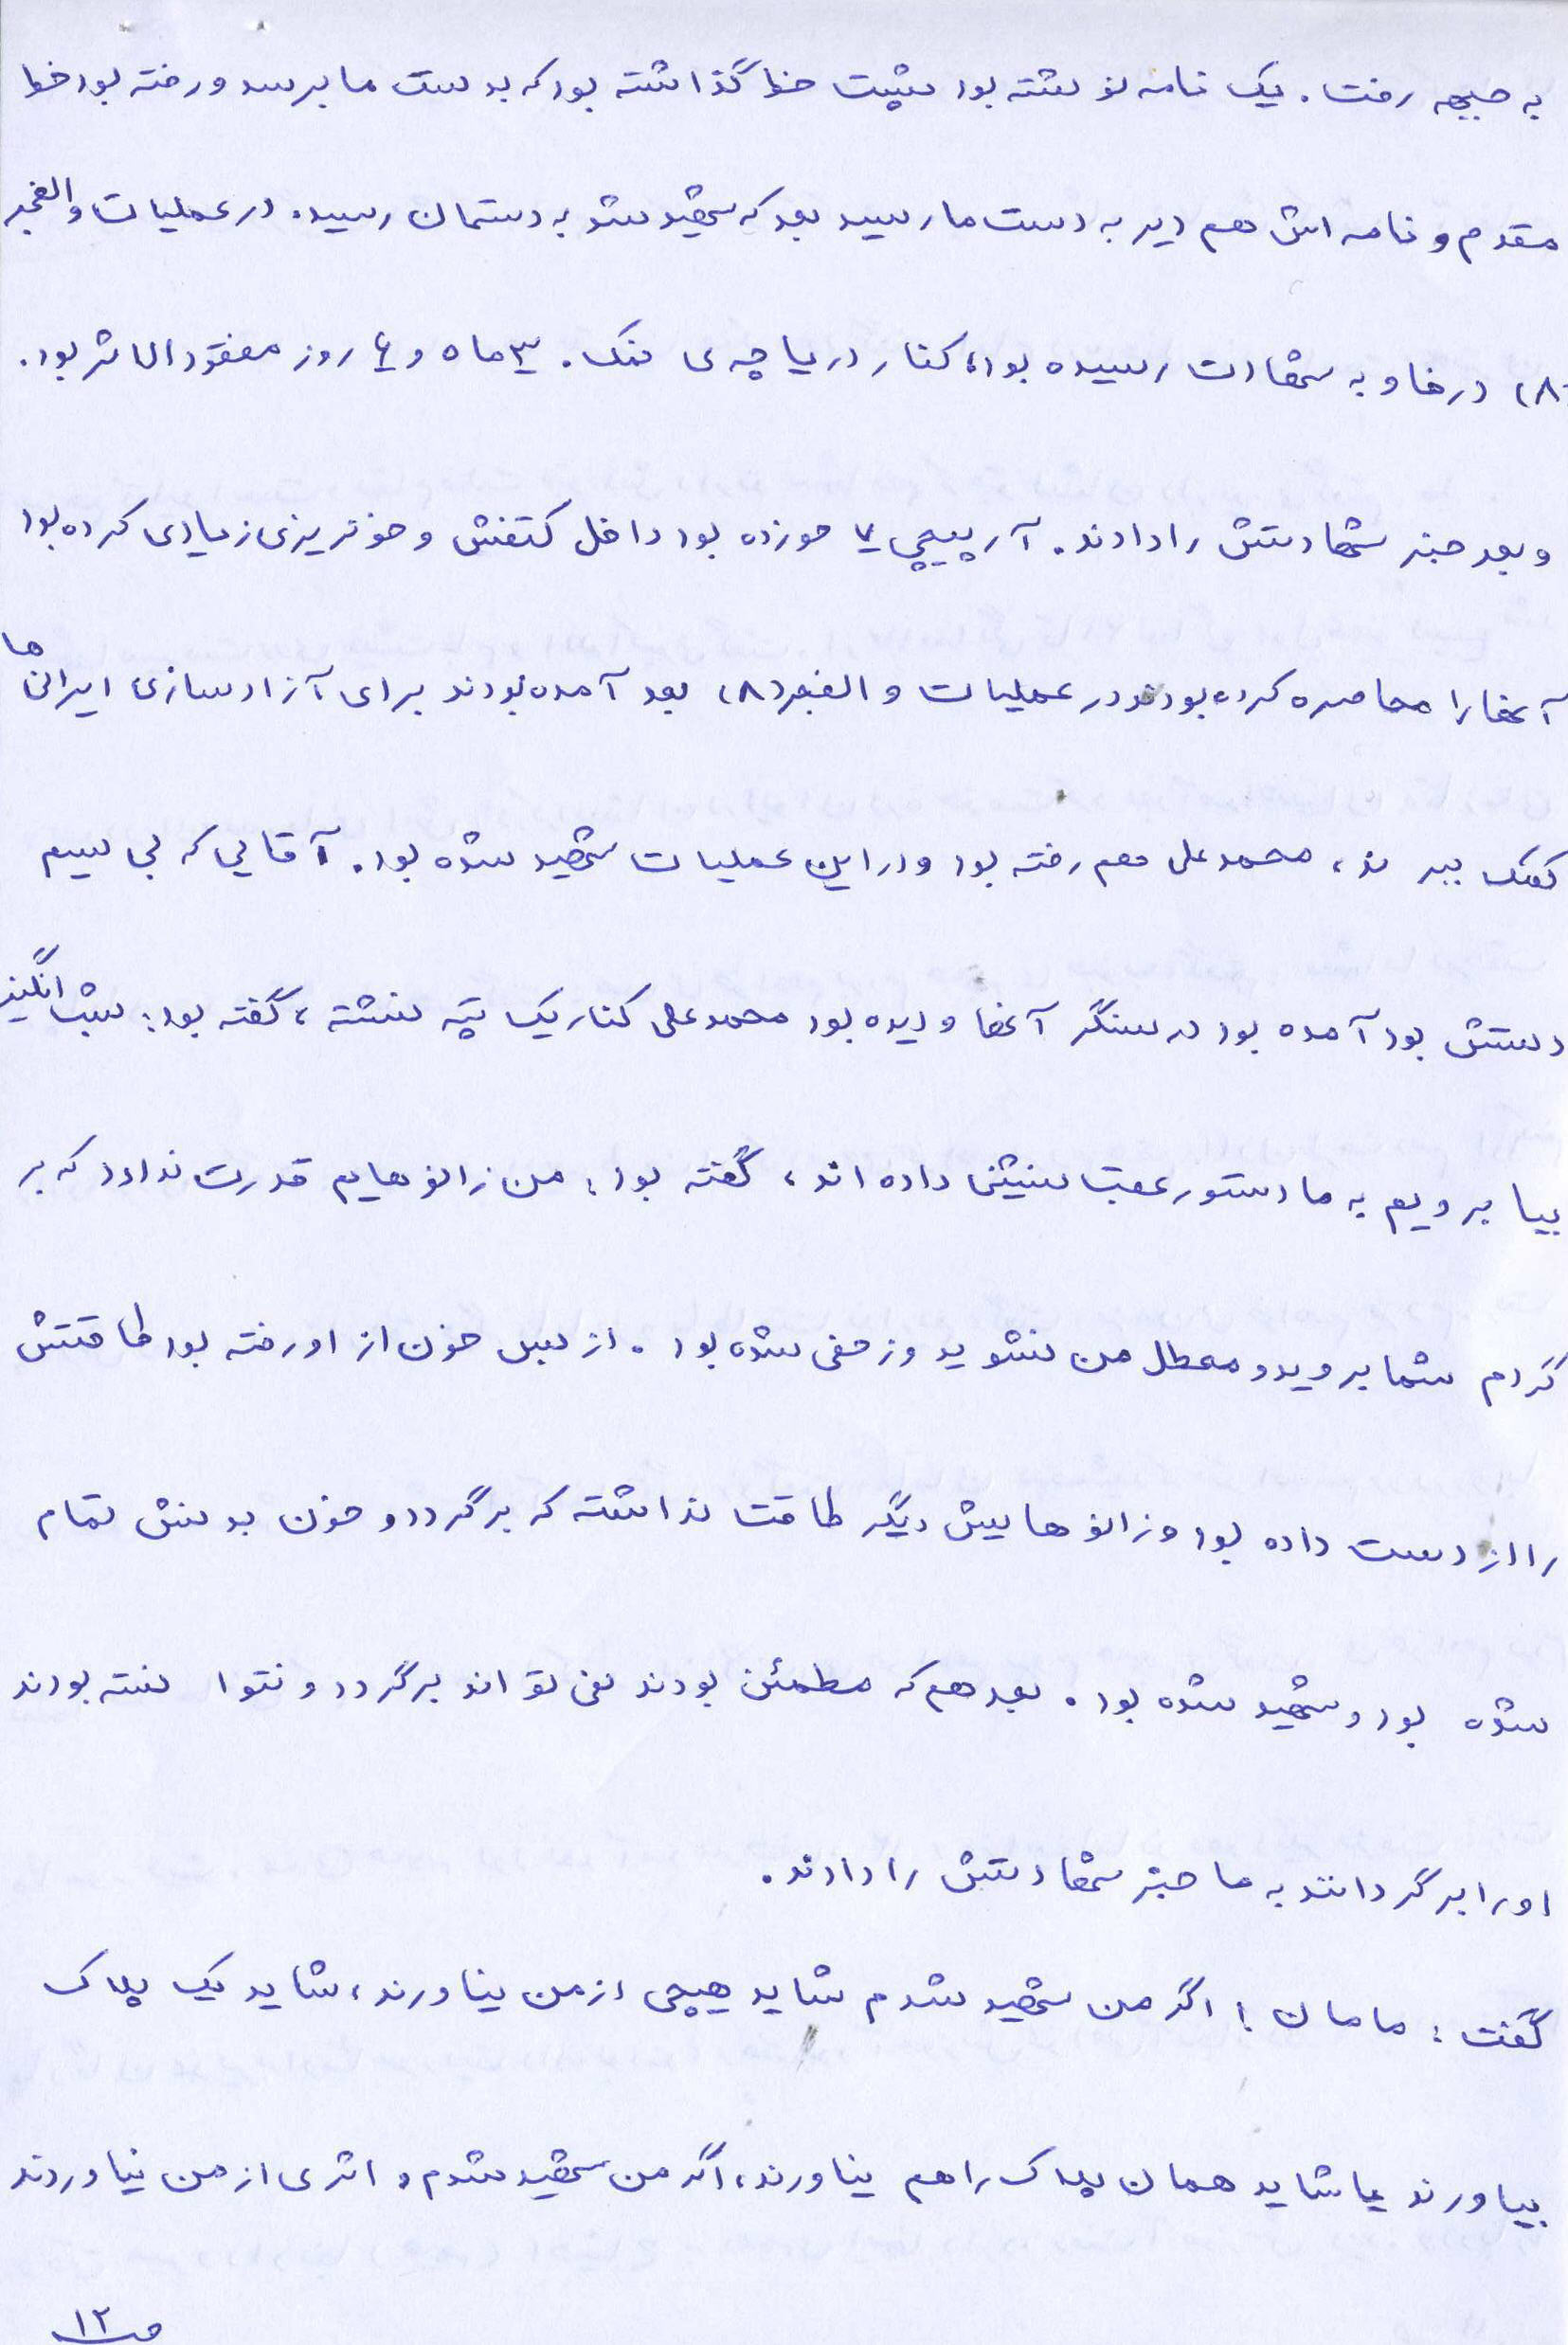 به جبهه رفت. یک نامه نوشته بود پشت خط گذاشته بود که بدست ما برسد و رفته بود خط
مقدم و نامه اش هم دیر به دست ما رسید بعد که شهید شد به دستمان رسید. در عملیات والفجر
(۸) در فاو به شهادت رسیده بود، کنار دریاچه ی نمک. ۳ ماه و ۴ روز مفقود الاثر بود.
و بعد خبر شهادتش را دادند. آرپیچی ۷ خورده بود داخل کتفش و خونریزی زیادی کرده بود
آنها را محاصره کرده بودند در عملیات والفجر (۸) بعد آمده بودند برای آزادسازی ایرانی ها
کمک ببرند، محمدعلی هم رفته بود و در این عملیات شهید شده بود. آقایی که بی سیم
دستش بود آمده بود در سنگر آنها و دیده بود محمدعلی کنار یک تپه نشسته، گفته بود:
بیا برویم به ما دستور عقب نشینی داده اند، گفته بود: من زانوهایم قدرت ندارد که بر
گردم شما بروید و معطل من نشوید و زخمی شده بود. از بس خون از او رفته بود طاقتش
را از دست داده بود و زانوهایش دیگر طاقت نداشته که برگردد و خون بدنش تمام
شده بود و شهید شده بود. بعد هم که مطمئن بودند نمی تواند برگردد و نتوانسته بودند
او را برگردانند به ما خبر شهادتش را دادند.
گفت: مامان! اگر من شهید شدم شاید هیچی از من نیاورند، شاید یک پلاک
بیاورند یا شاید همان پلاک را هم نیاورند، اگر من شهید شدم و اثری از من نیاوردند
ص ۱۲